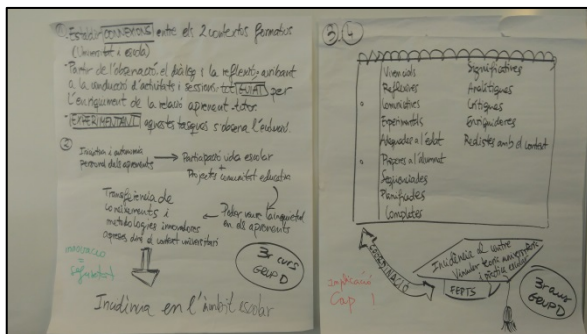 ① Establir CONNEXIONS entre els 2 contextos formatius
(Universitat i escola)
- Partir de l'observació, el diàleg i la reflexió, arribant
a la conducció d'activitats i sessions, tot GUIAT per
l'enriquiment de la relació aprenent-tutor.
- EXPERIMENTANT aquestes tasques s'observa l'evolució.
②
Iniciativa i autonomia
personal dels aprenents
Participació vida escolar
+
Projectes comunitat educativa
Poder veure
en els aprenents
Transferència de
coneixements i
metodologies innovadores
apreses dins el context universitari
=
Incidència en l'àmbit escolar
3r curs
GRUP D
③.④
Vivencials
Reflexives
Comunicatives
Experimentals
Adequades a l'edat
Properes a l'alumnat
Seqüenciades
Planificades
Completes
Significatives
Analítiques
Crítiques
Enriquidores
Realistes amb el context
COORDINACIÓ
Incidència al centre
Vincular teoria
i pràctica escolar
FEPTS
3r curs
GRUP D
implicació
Cap 1